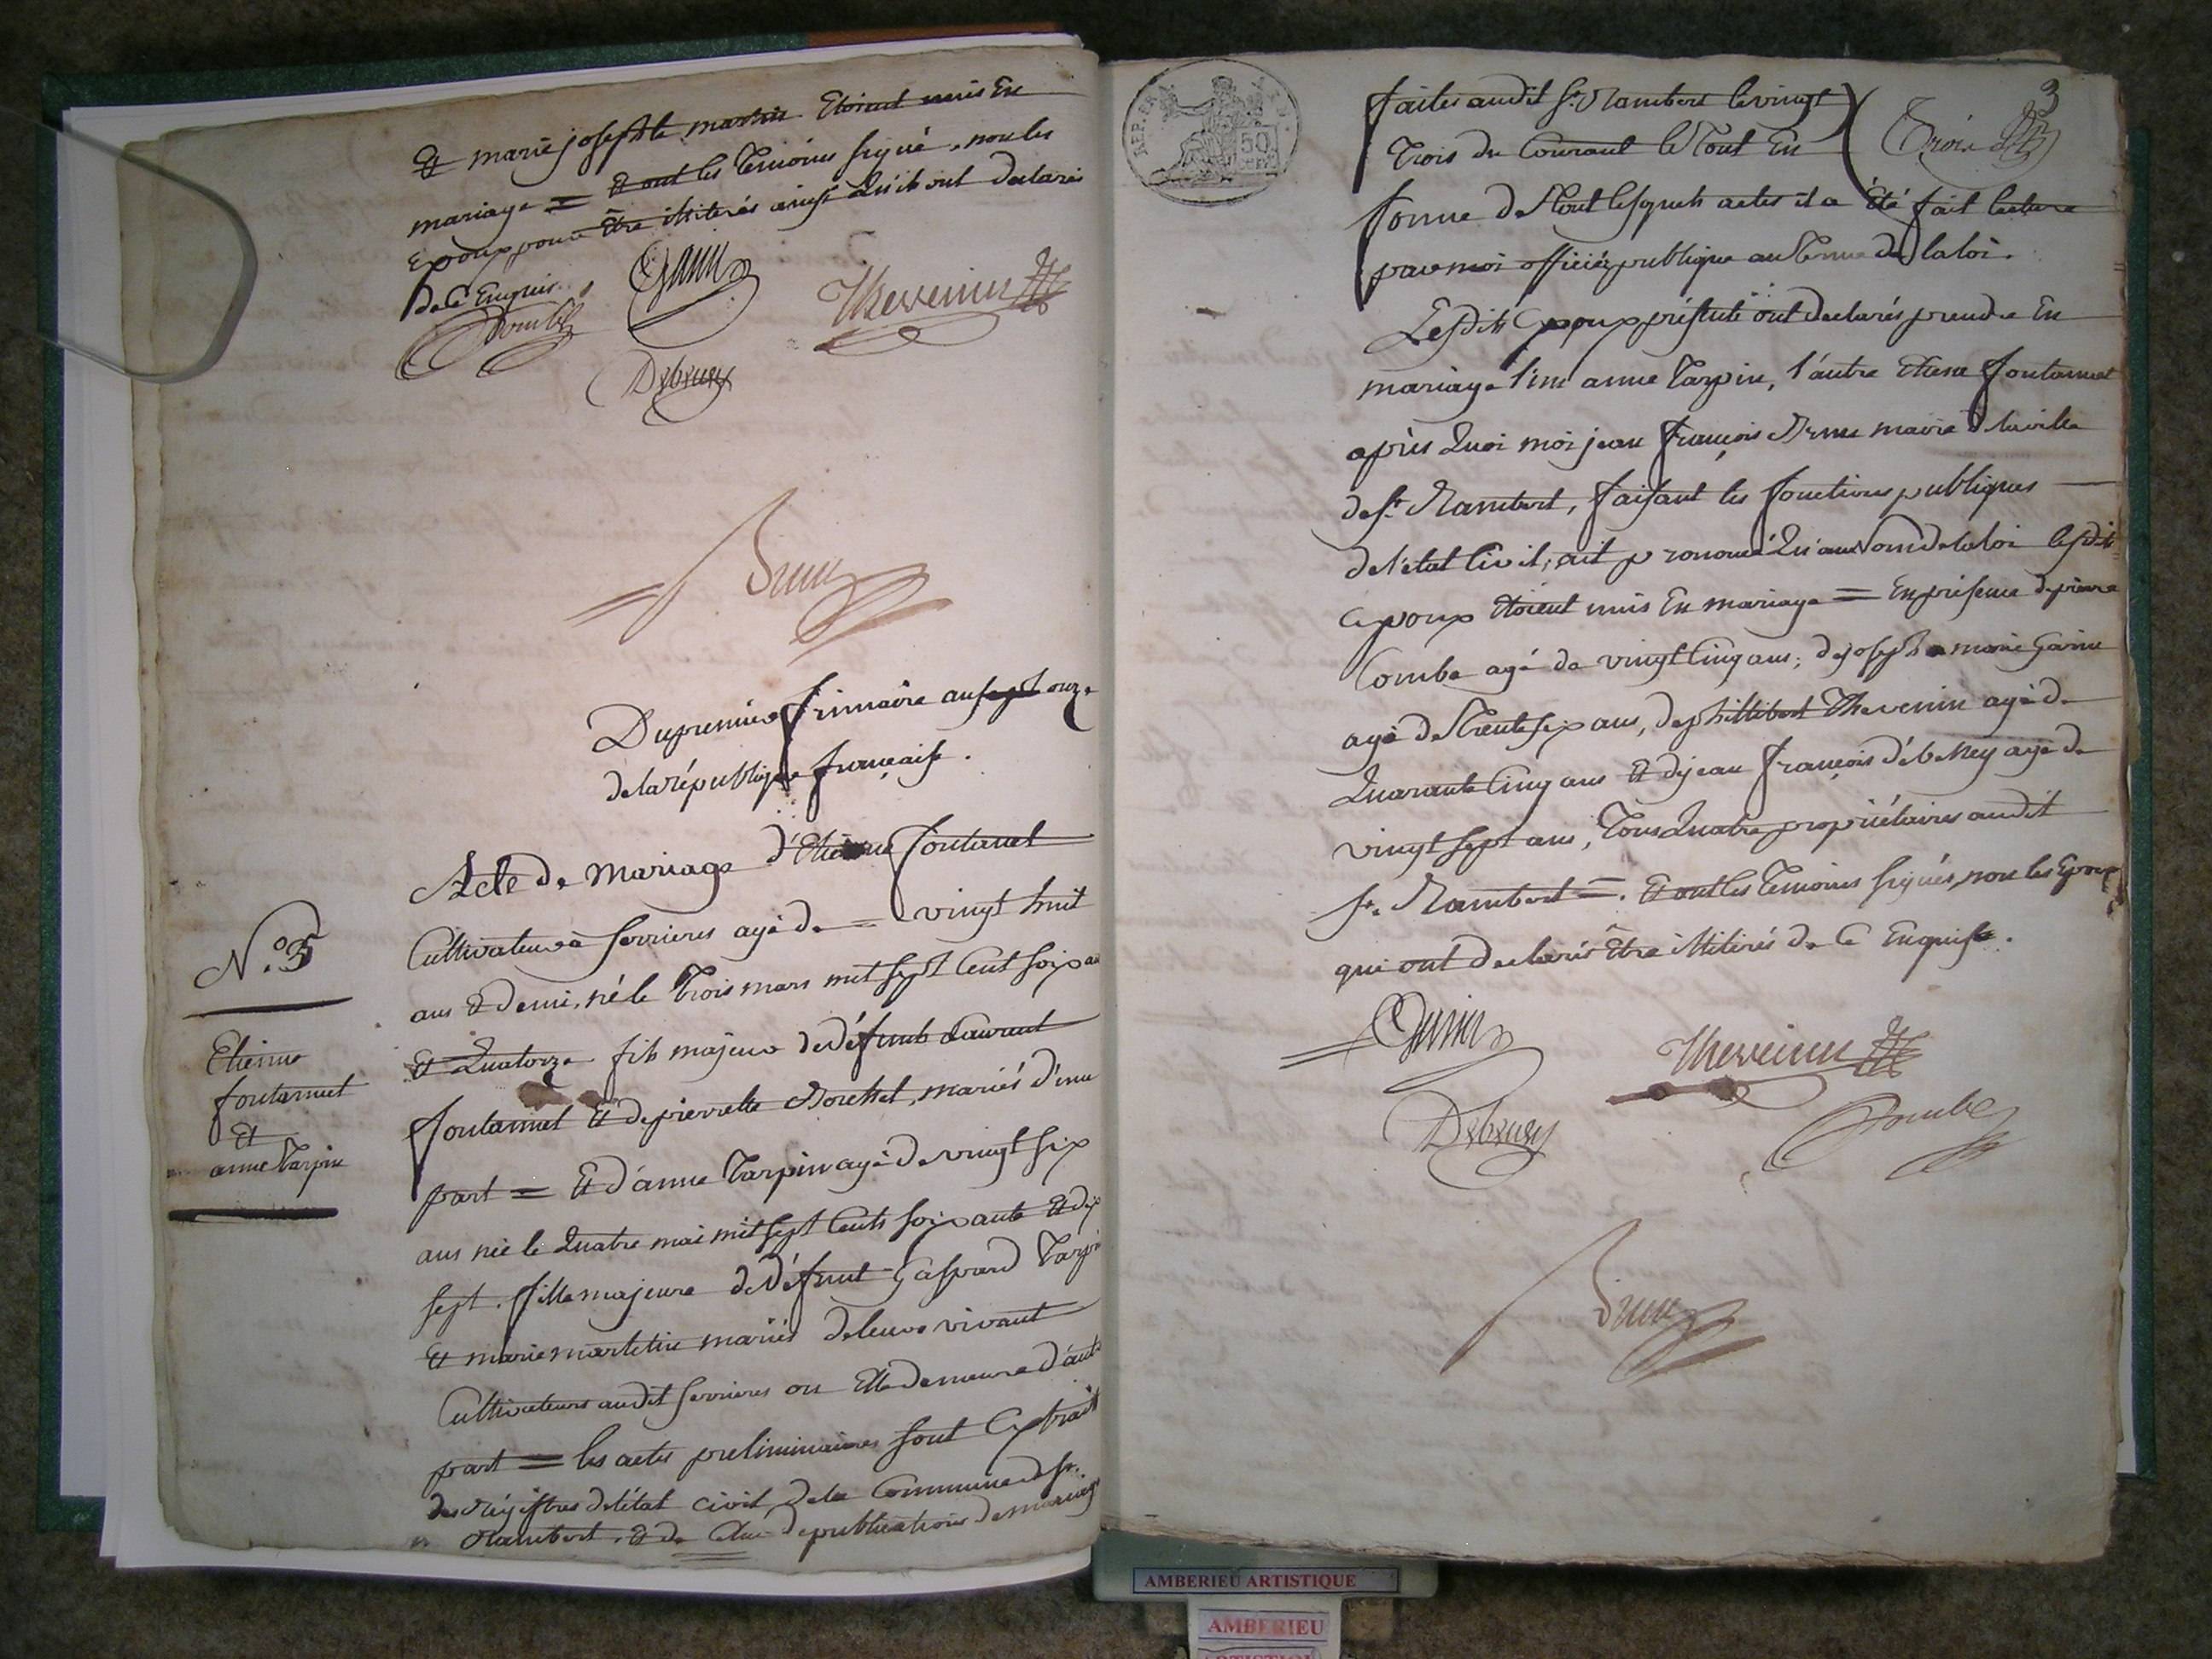 Et marie josephte martin Etoient unis En
mariage = Et ont les temoins signé, non les
Epoux pour Etre illiterés ainsi Qu'ils ont declarés
de Ce Enquis.
Combe
Garin
Thevenin
Debeney
Brun
Du premier frimaire an sept onze
de la république française.
N.° 5
Etienne
fontannet
Et
anne Tarpin
Acte de Mariage d'Etienne fontanet
Cultivateur à Serrieres agé de = vingt huit
ans Et demi, né le Trois mars mil sept Cent soixante
Et Quatorze fils majeur de Défunt Laurent
fontannet Et de pierrette, mariés d'une
part = Et d'anne Tarpin agée de vingt six
ans née le Quatre mai mil sept Cents soixante Et dix
sept. fille majeure de Défunt Gaspard Tarpin
Et marie mariés de leurs vivant
Cultivateurs audit Serrieres ou Elle demeure d'autre
part = les actes preliminaires sont Extraits
des Régistres de l'état civil de la Commune de St.
Rambert. Et de Celui de publications de mariage
REP. FRA.
50
3
Trois
faites audit St. Rambert le vingt
Trois du Courant le Tout En
forme De Tout lesquels actes il a Eté fait lecture
par moi officier publique au Terme de la loi.
Lesdits Epoux présents ont declarés prendre En
mariage l'un anne Tarpin, l'autre Etiene fontannet
après Quoi moi jean françois Brun maire de la ville
de St. Rambert, faisant les fonctions publiques
de l'état Civil, ait prononcé Qu'au Nom de la loi lesdits
Epoux Etoient unis En mariage = En présence de pierre
Combe agé de vingt Cinq ans, de joseph marie Garin
agé de Trente six ans, de phillibert Thevenin agé de
Quarante Cinq ans Et de jean françois débeney agé de
vingt sept ans, Tous Quatre propriétaires audit
St. Rambert =. Et ont les Temoins signés, non les Epoux
qui ont declarés Etre illiterés de Ce Enquise.
Garin
Thevenin
Debeney
Combe
Brun
AMBERIEU ARTISTIQUE
AMBERIEU
ARTISTIQUE